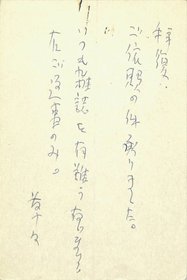 拝復、
ご依頼の件承りました。
いつも雑誌を有難うございます
右ご返事のみ。
草々